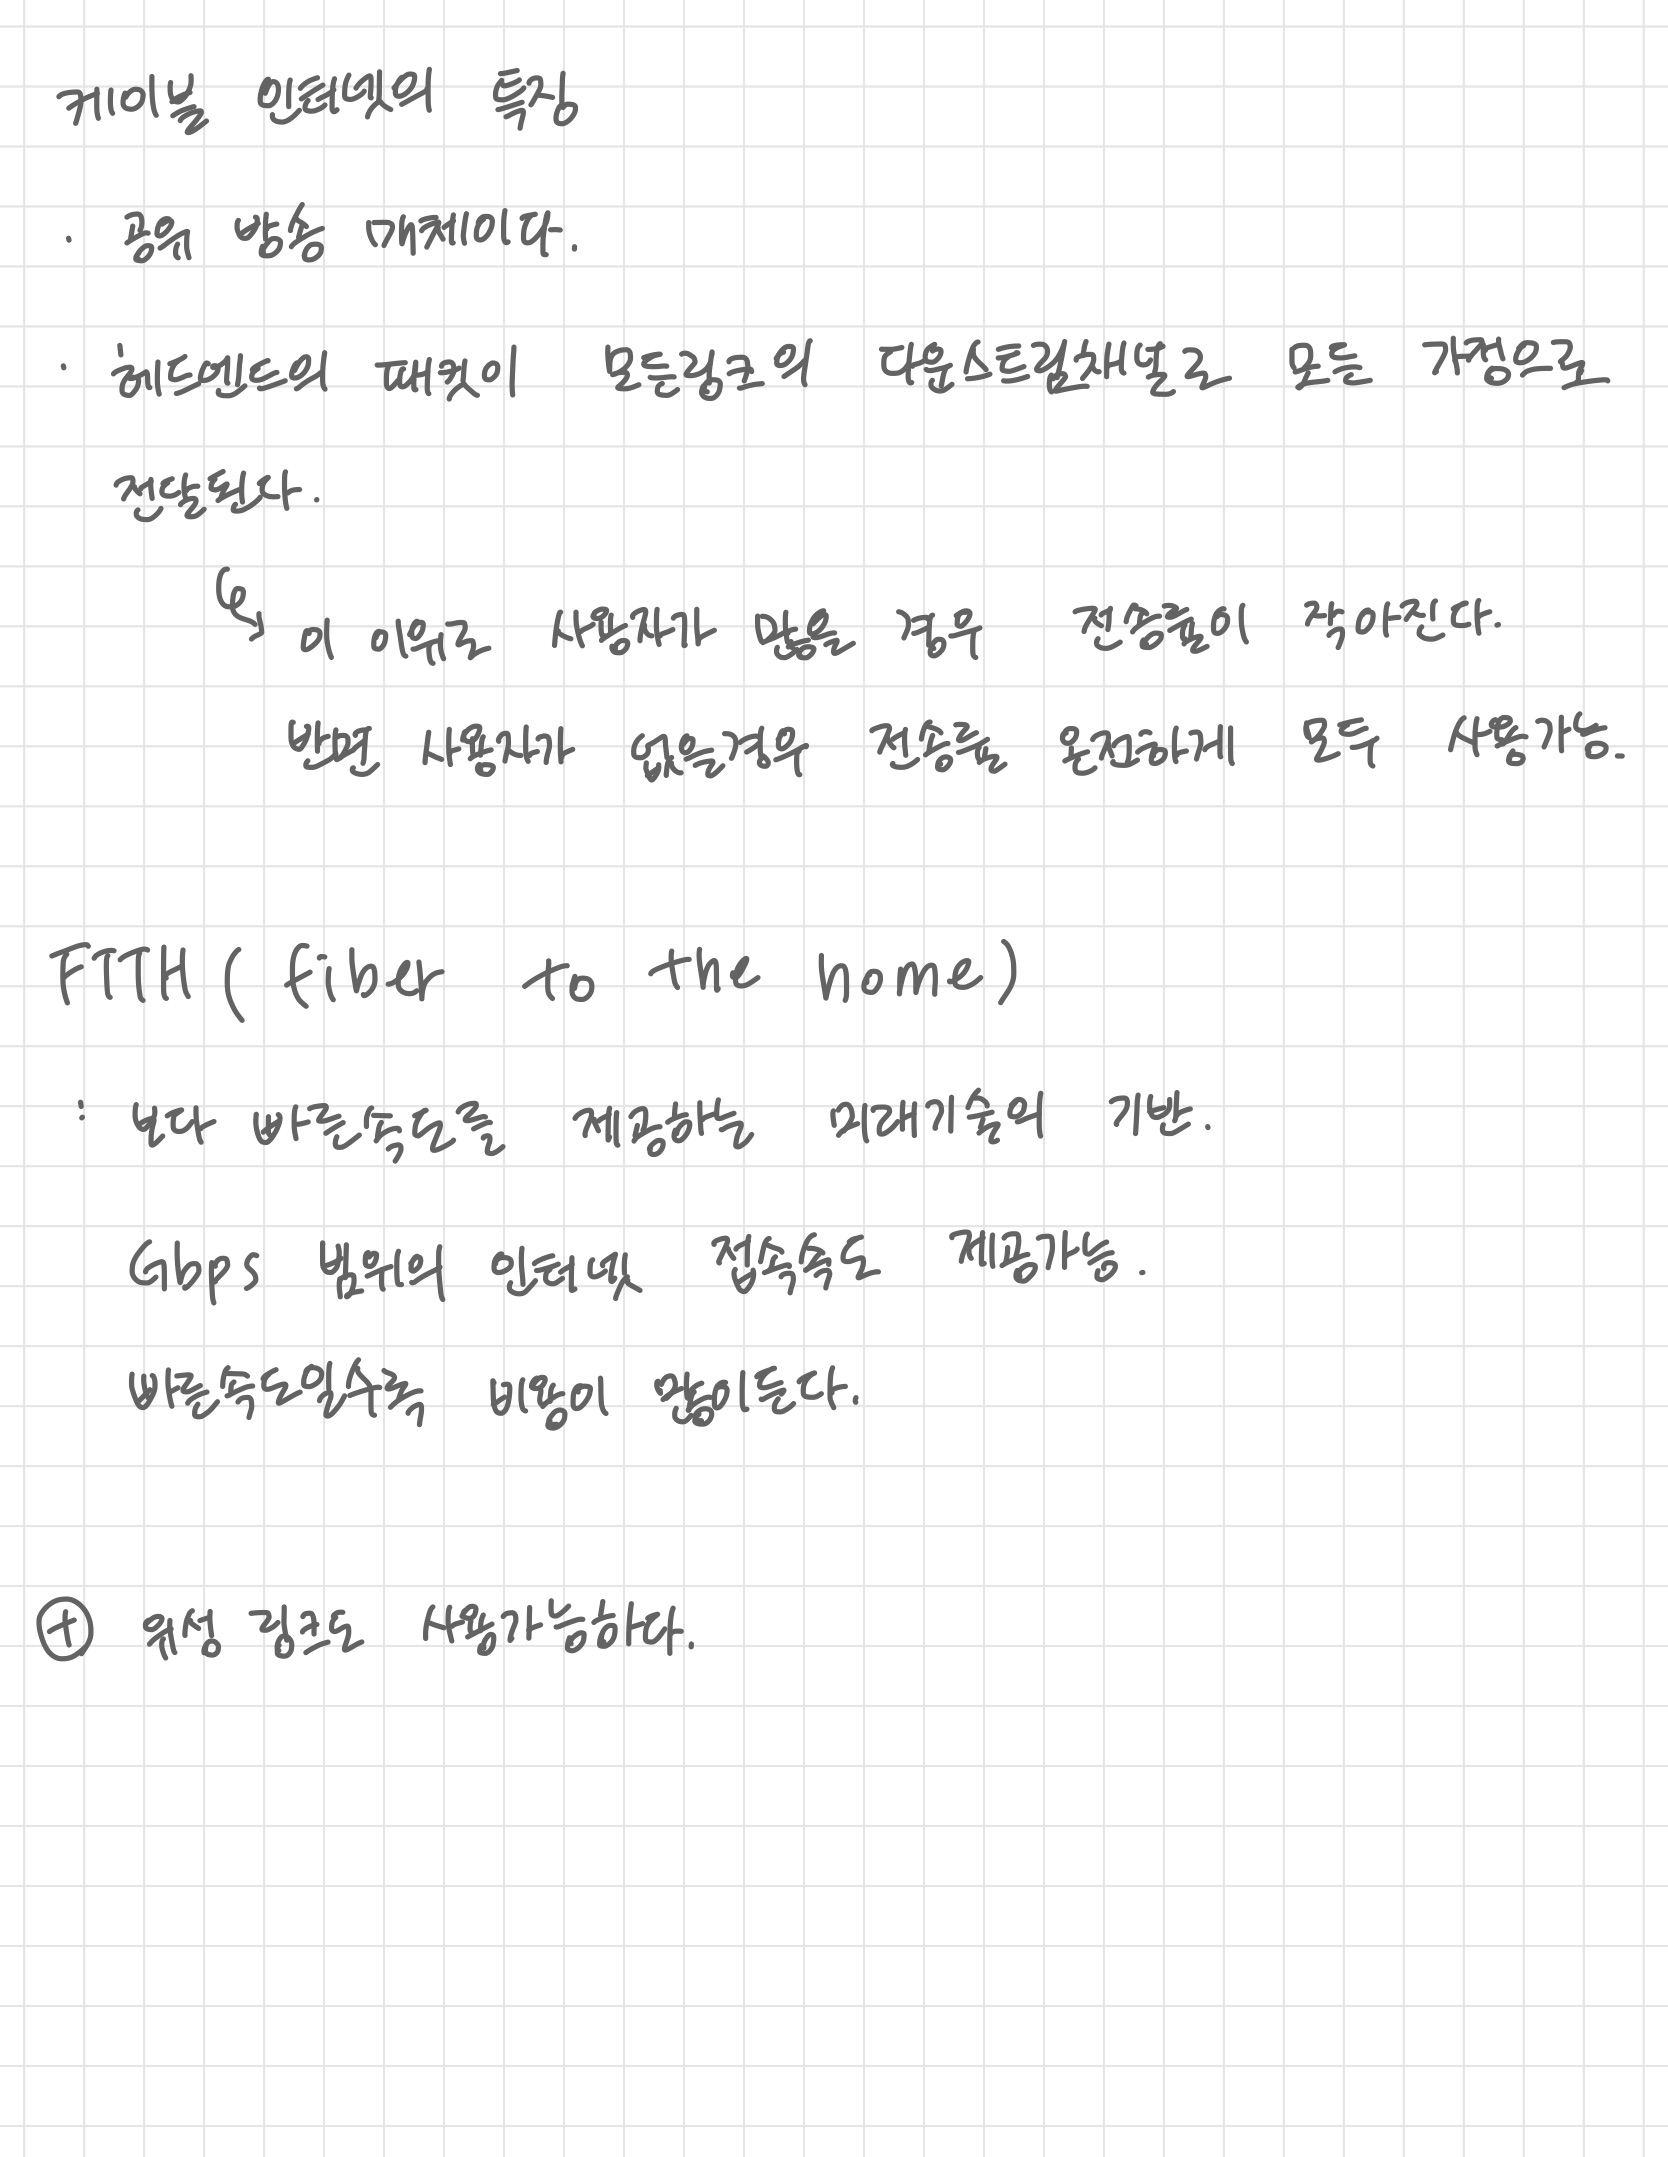 케이블 인터넷의 특징
· 공유 방송 매체이다.
· 헤드엔드의 패킷이 모든링크의 다운스트림채널로 모든 가정으로
전달된다.
↳ 이 이유로 사용자가 많을 경우 전송률이 작아진다.
반면 사용자가 없을경우 전송률 온전하게 모두 사용가능.
FTTH ( fiber to the home )
: 보다 빠른속도를 제공하는 미래기술의 기반.
Gbps 범위의 인터넷 접속속도 제공가능.
빠른속도일수록 비용이 많이든다.
⊕ 위성 링크도 사용가능하다.